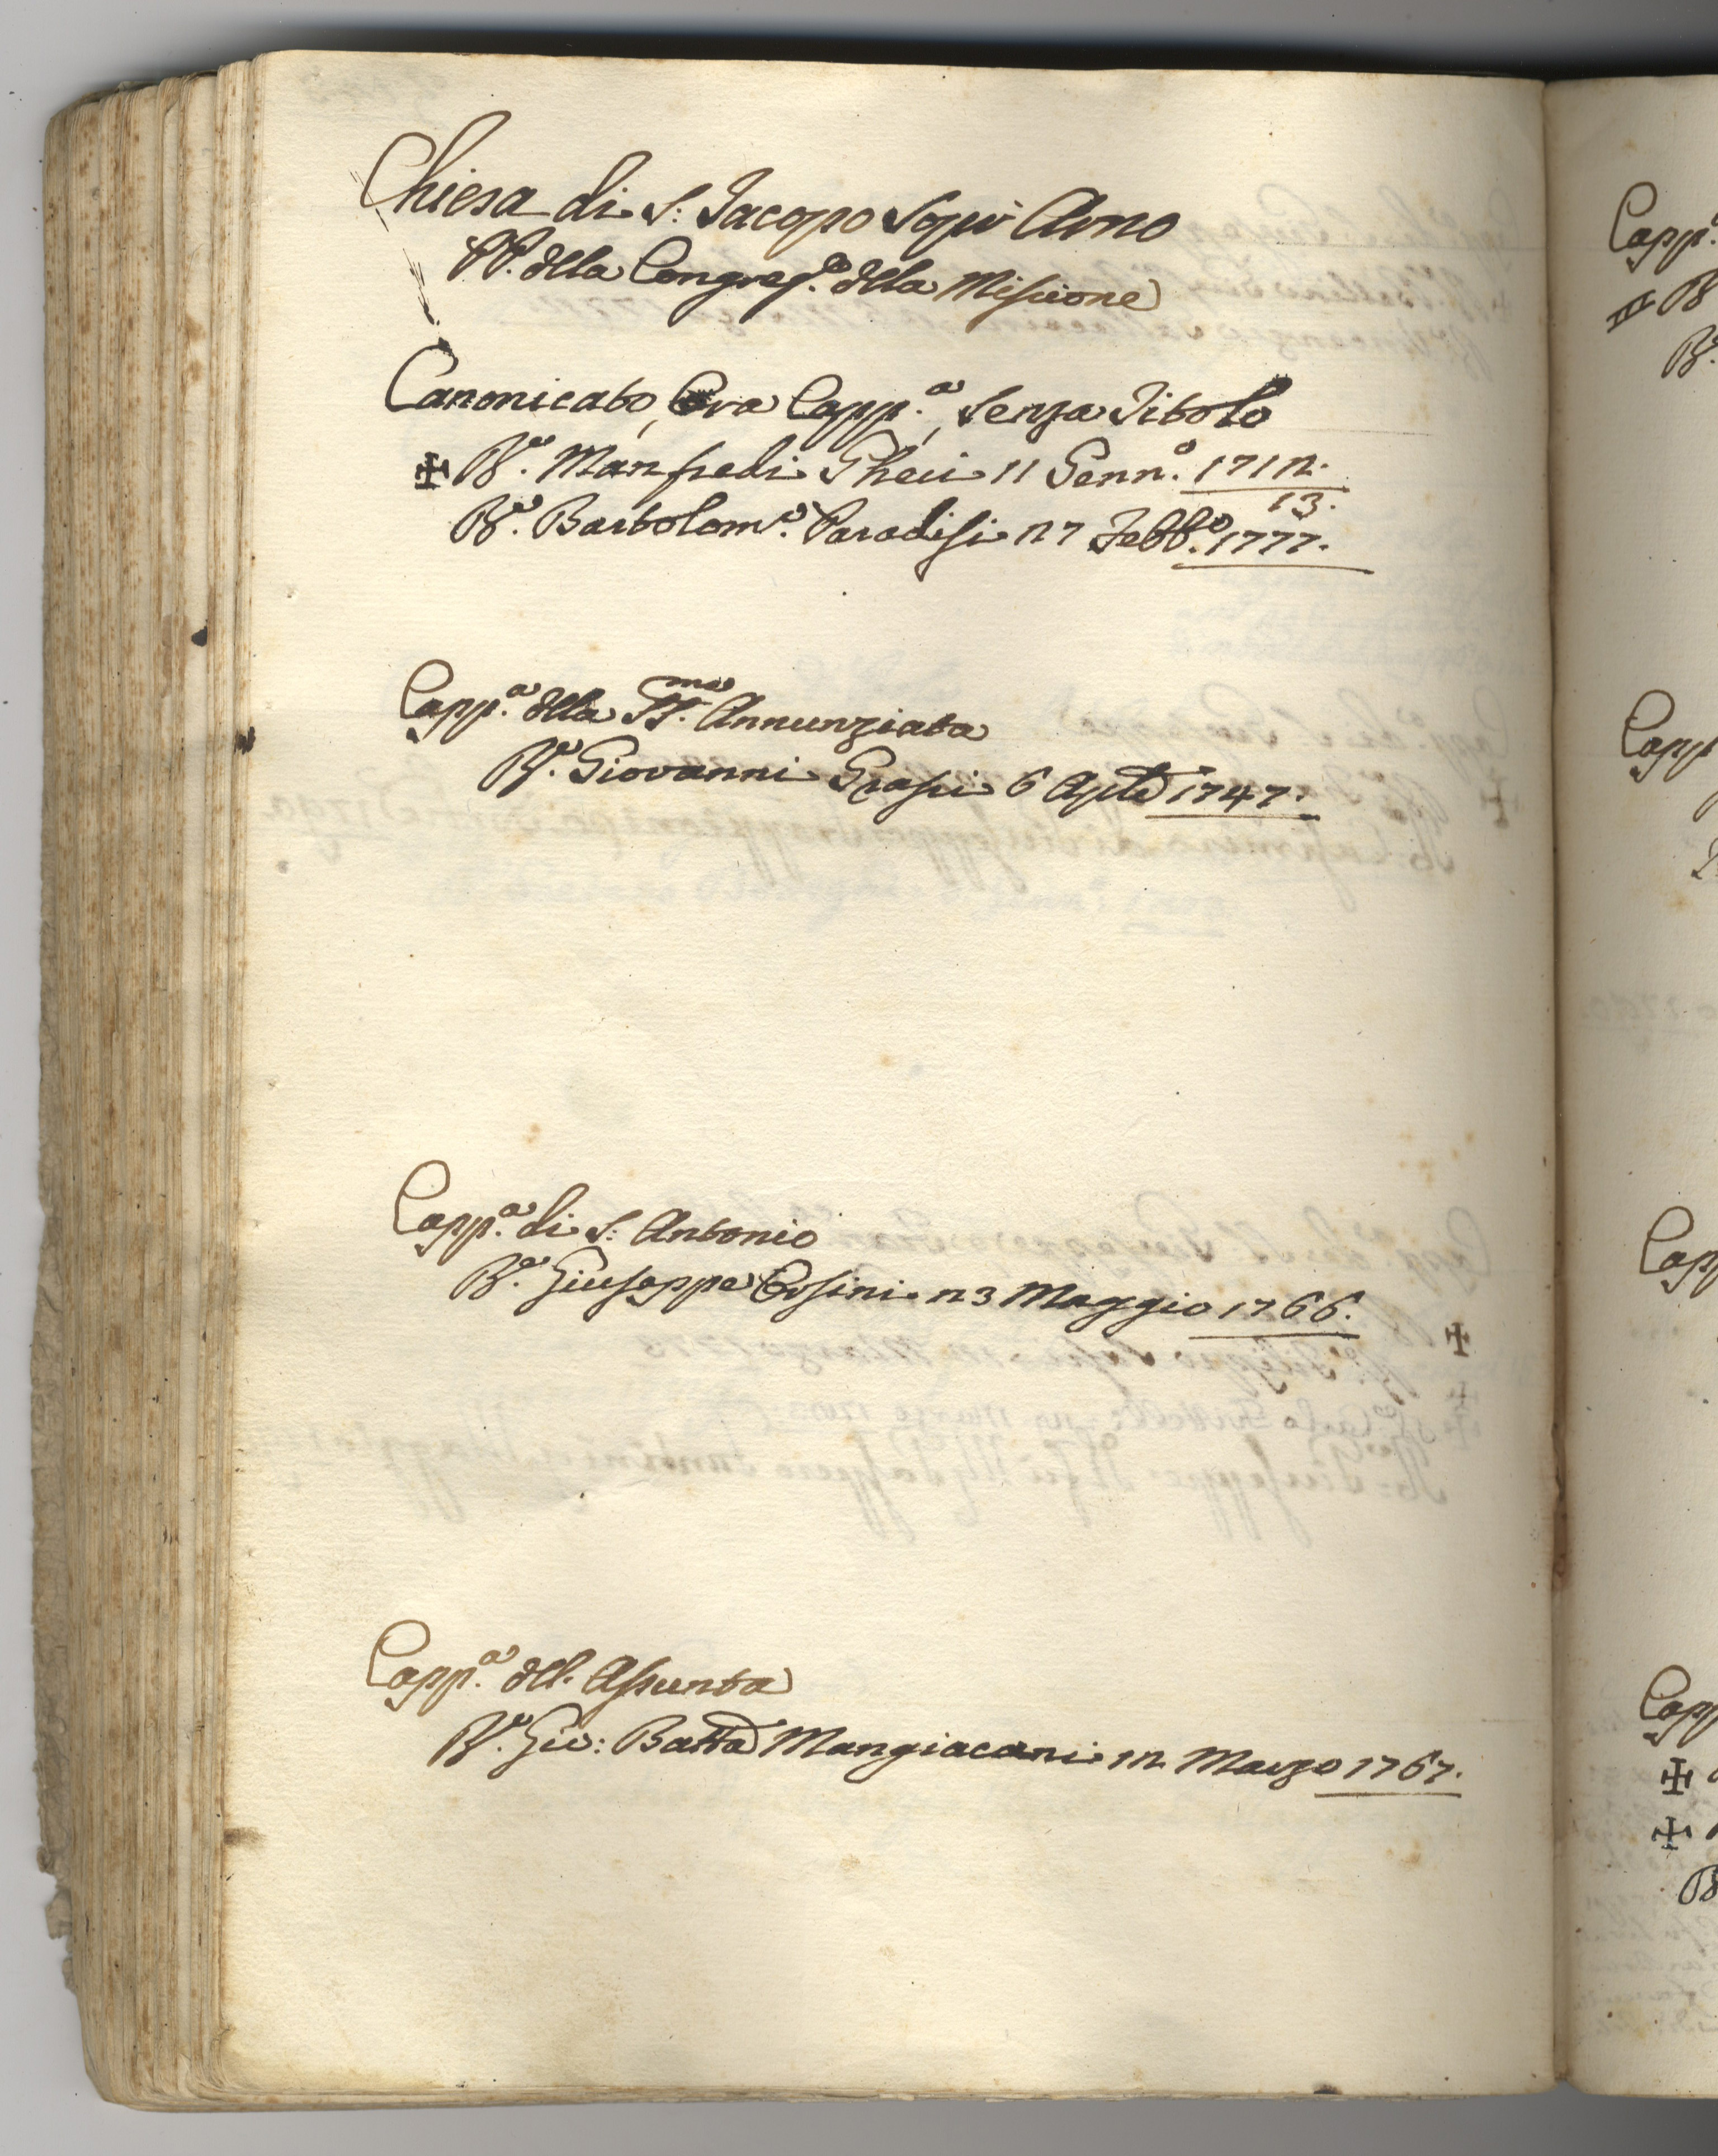 Chiesa di S: Jacopo Sopr' Arno
PP. della Congreg.e della Missione
Canonicato, Ora Capp.a, senza Titolo
✠ R.e Manfredi Gheri 11 Genn.o 1712.
13.
R.e Bartolom.o Paradisi 27 Febb.o 1777.
Capp.a della SS.ma Annunziata
R.e Giovanni Grassi 6 Aple 1747.
Capp.a di S: Antonio
R.e Giuseppe Orsini 23 Maggio 1766.
Capp.a dell' Assunta
R.e Gio: Batta Mangiacani 12 Marzo 1767.
Capp.
Capp
Capp
Capp
✠
✠